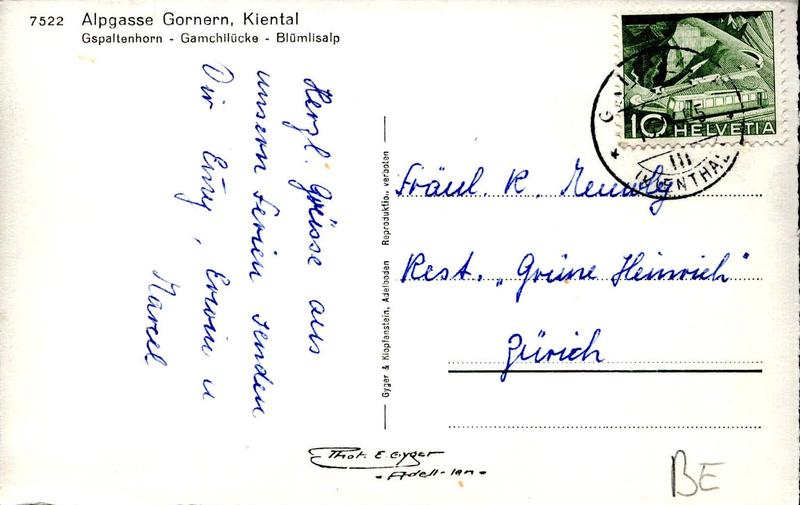 7522 Alpgasse Gornern, Kiental
Gspaltenhorn - Gamchilücke - Blümlisalp
Herzl. Grüsse aus
unsern Ferien senden
Dir Emmy, Erwin u
Marcel
Reproduktion verboten
Gyger & Klopfenstein, Adelboden
10 HELVETIA
III
Fräul. K. Meuwly
Rest. „Grüne Heinrich"
Zürich
Phot. E. Gyger
BE